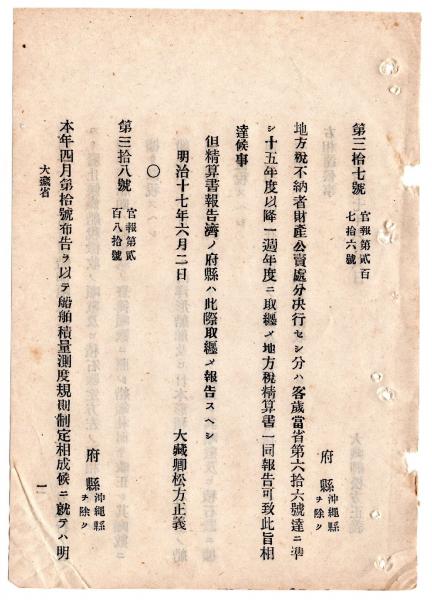 第三拾七號 官報第貳百七拾六號
府縣 沖繩縣ヲ除ク
地方稅不納者財產公賣處分决行セシ分ハ客歲當省第六拾六號達ニ準
シ十五年度以降一週年度ニ取纒メ地方稅精算書一同報告可致此旨相
達候事
但精算書報告濟ノ府縣ハ此際取纒メ報告スヘシ
明治十七年六月二日 大藏卿松方正義
〇
第三拾八號 官報第貳百八拾號
府縣 沖繩縣ヲ除ク
本年四月第拾號布告ヲ以テ船舶積量測度規則制定相成候ニ就テハ明
大藏省
一